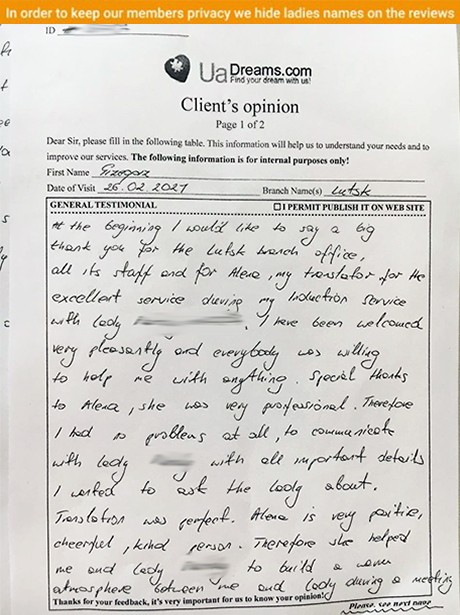 In order to keep our members privacy we hide ladies names on the reviews
ID
UaDreams.com
Find your dream with us!
Client's opinion
Page 1 of 2
Dear Sir, please fill in the following table. This information will help us to understand your needs and to
improve our services. The following information is for internal purposes only!
First Name Grzegorz
Date of Visit 26.02.2021 Branch Name(s) Lutsk
GENERAL TESTIMONIAL □I PERMIT PUBLISH IT ON WEB SITE
At the beginning I would like to say a big
thank you for the Lutsk branch office,
all its staff and for Alena, my translator for the
excellent service during my Induction Service
with lady . I have been welcomed
very pleasantly and everybody was willing
to help me with anything. Special thanks
to Alena, she was very professional. Therefore
I had no problems at all, to communicate
with lady with all important details
I wanted to ask the lady about.
Translation was perfect. Alena is very positive,
cheerful, kind person. Therefore she helped
me and lady to build a warm
atmosphere between me and lady during a meeting
Thanks for your feedback, it's very important for us to know your opinion!
Please, see next page